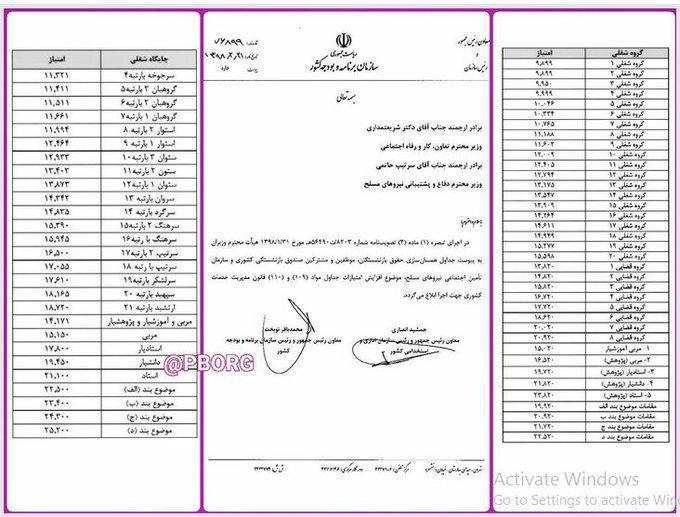 گروه شغلی	امتیاز
گروه شغلی ۱	۹,۸۹۹
گروه شغلی ۲	۹,۸۹۹
گروه شغلی ۳	۹,۹۵۰
گروه شغلی ۴	۹,۹۹۹
گروه شغلی ۵	۱۰,۰۴۶
گروه شغلی ۶	۱۰,۳۳۴
گروه شغلی ۷	۱۰,۷۶۵
گروه شغلی ۸	۱۱,۱۸۸
گروه شغلی ۹	۱۱,۶۰۲
گروه شغلی ۱۰	۱۲,۰۰۹
گروه شغلی ۱۱	۱۲,۴۰۵
گروه شغلی ۱۲	۱۲,۷۹۴
گروه شغلی ۱۳	۱۳,۱۷۵
گروه شغلی ۱۴	۱۳,۵۴۷
گروه شغلی ۱۵	۱۳,۹۰۹
گروه شغلی ۱۶	۱۴,۲۶۴
گروه شغلی ۱۷	۱۴,۶۱۱
گروه شغلی ۱۸	۱۴,۹۴۹
گروه شغلی ۱۹	۱۵,۲۷۷
گروه شغلی ۲۰	۱۵,۵۹۸
گروه قضایی ۱	۱۳,۸۲۰
گروه قضایی ۲
گروه قضایی ۳
گروه قضایی ۴	۱۶,۷۲۰
گروه قضایی ۵	۱۷,۸۲۰
گروه قضایی ۶
گروه قضایی ۷	۲۰,۰۲۰
گروه قضایی ۸	۲۰,۹۲۰
۱- مربی آموزشیار	۱۵,۰۲۰
۲- مربی (پژوهش)	۱۶,۵۲۰
۳- استادیار (پژوهش)	۱۹,۱۷۰
۴- دانشیار (پژوهش)	۲۱,۸۲۰
۵- استاد (پژوهش)	۲۳,۸۲۰
مقامات موضوع بند الف	۱۹,۹۲۰
مقامات موضوع بند ب	۲۰,۹۲۰
مقامات موضوع بند ج	۲۱,۷۲۰
مقامات موضوع بند د	۲۲,۵۲۰
معاون رئیس جمهور
و
رئیس سازمان
ریاست جمهوری
سازمان برنامه و بودجه کشور
۱۳۹۸/۰۲/۲۱
دارد
بسمه تعالی
برادر ارجمند جناب آقای دکتر شریعتمداری
وزیر محترم تعاون، کار و رفاه اجتماعی
برادر ارجمند جناب آقای سرتیپ حاتمی
وزیر محترم دفاع و پشتیبانی نیروهای مسلح
با سلام و احترام؛
در اجرای تبصره (۱) ماده (۳) تصویب‌نامه شماره ۸۲۰۳/ت۵۶۴۹۰ه مورخ ۱۳۹۸/۱/۳۱ هیأت محترم وزیران
به پیوست جداول همسان‌سازی حقوق بازنشستگان، موظفین و مشترکین صندوق بازنشستگی کشوری و سازمان
تأمین اجتماعی نیروهای مسلح، موضوع افزایش امتیازات جداول مواد (۱۰۹) و (۱۱۰) قانون مدیریت خدمات
کشوری جهت اجرا ابلاغ می‌گردد.
جمشید انصاری
معاون رئیس جمهور و رئیس سازمان اداری و
استخدامی کشور
محمدباقر نوبخت
معاون رئیس جمهور و رئیس سازمان برنامه و بودجه
کشور
جایگاه شغلی	امتیاز
سرجوخه بارتبه۴	۱۱,۳۲۱
گروهبان ۳ بارتبه۵	۱۱,۴۱۱
گروهبان ۲ بارتبه۶	۱۱,۵۱۱
گروهبان ۱ بارتبه۷	۱۱,۶۶۱
استوار ۲ بارتبه ۸	۱۱,۹۹۴
استوار ۱ بارتبه ۹	۱۲,۴۶۴
ستوان ۳ بارتبه ۱۰	۱۲,۹۳۳
ستون ۲ بارتبه۱۱	۱۳,۴۰۳
ستوان ۱ بارتبه۱۲	۱۳,۸۷۳
سروان بارتبه ۱۳	۱۴,۳۴۲
سرگرد بارتبه ۱۴	۱۴,۸۳۵
سرهنگ ۲ بارتبه۱۵	۱۵,۳۹۰
سرهنگ با رتبه۱۶	۱۵,۹۴۵
سرتیپ ۲ بارتبه۱۷	۱۶,۵۰۰
سرتیپ با رتبه ۱۸	۱۷,۰۵۵
سرلشکر بارتبه۱۹	۱۷,۶۱۰
سپهبد بارتبه ۲۰	۱۸,۱۶۵
ارتشبد بارتبه ۲۱	۱۸,۷۲۰
مربی و آموزشیار و پژوهشیار	۱۴,۱۷۱
مربی	۱۵,۱۵۰
استادیار	۱۷,۸۰۰
دانشیار	۱۹,۴۵۰
استاد	۲۱,۱۰۰
موضوع بند (الف)	۲۲,۵۰۰
موضوع بند (ب)	۲۳,۴۰۰
موضوع بند (ج)	۲۴,۳۰۰
موضوع بند (د)	۲۵,۲۰۰
@PBORG
Activate Windows
Go to Settings to activate Win